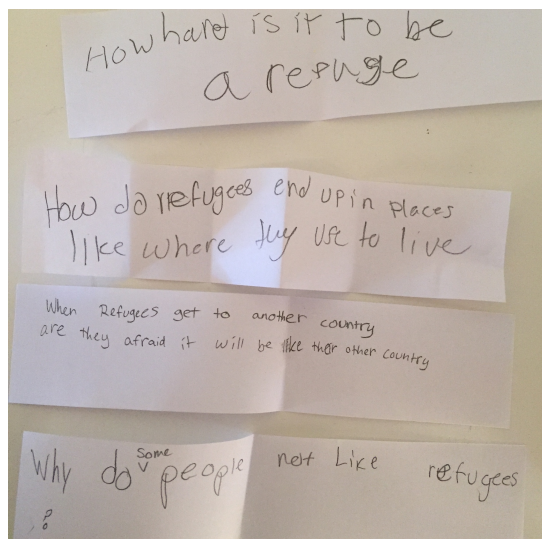 How hard is it to be
a repuge
How do refugees end up in places
like where they use to live
When Refugees get to another country
are they afraid it will be like their other country
Why do some people not Like refugees
?